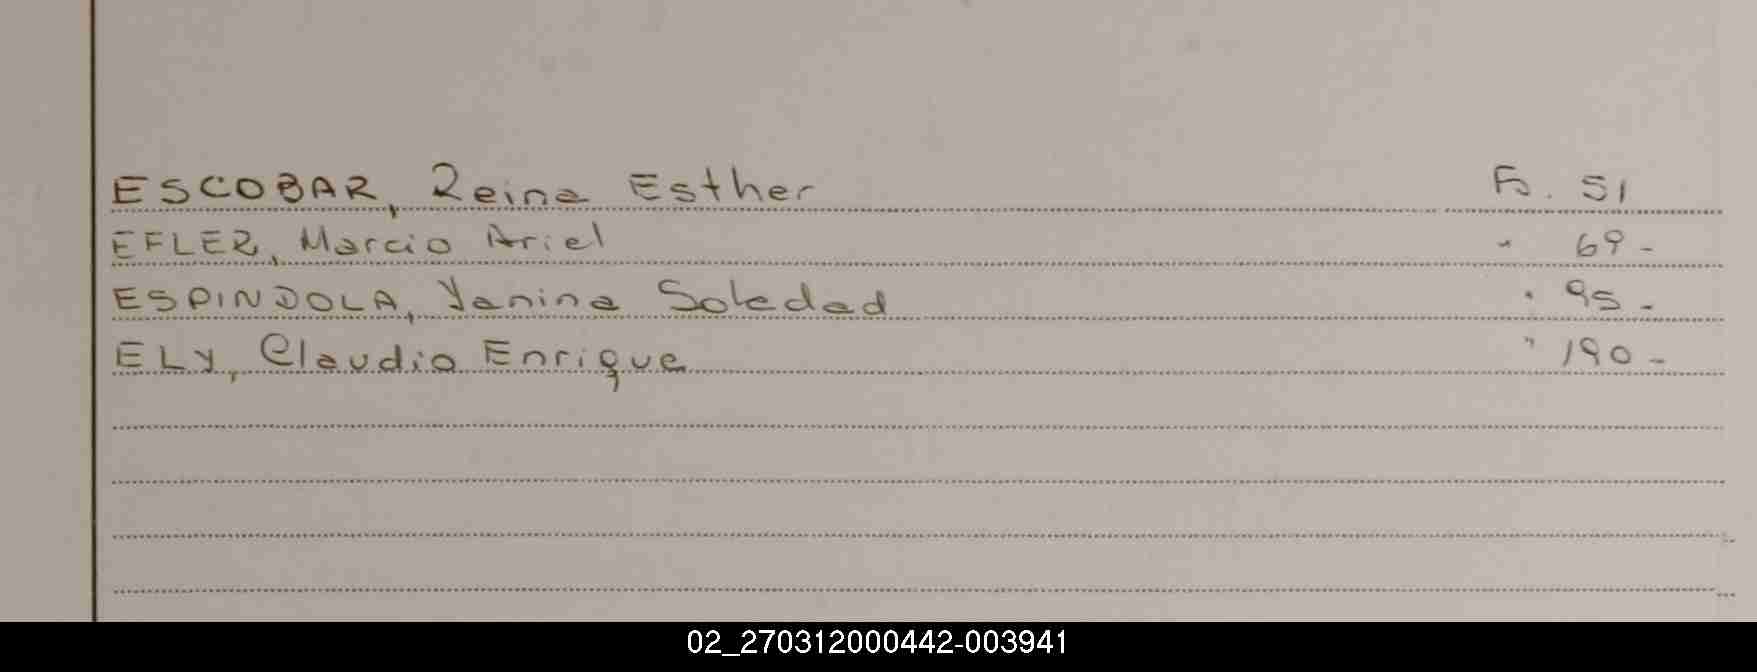 ESCOBAR, Reina Esther Fo. 51
EFLER, Marcio Ariel " 69-
ESPINDOLA, Yanina Soledad " 95-
ELY, Claudio Enrique " 190-
02_270312000442-003941